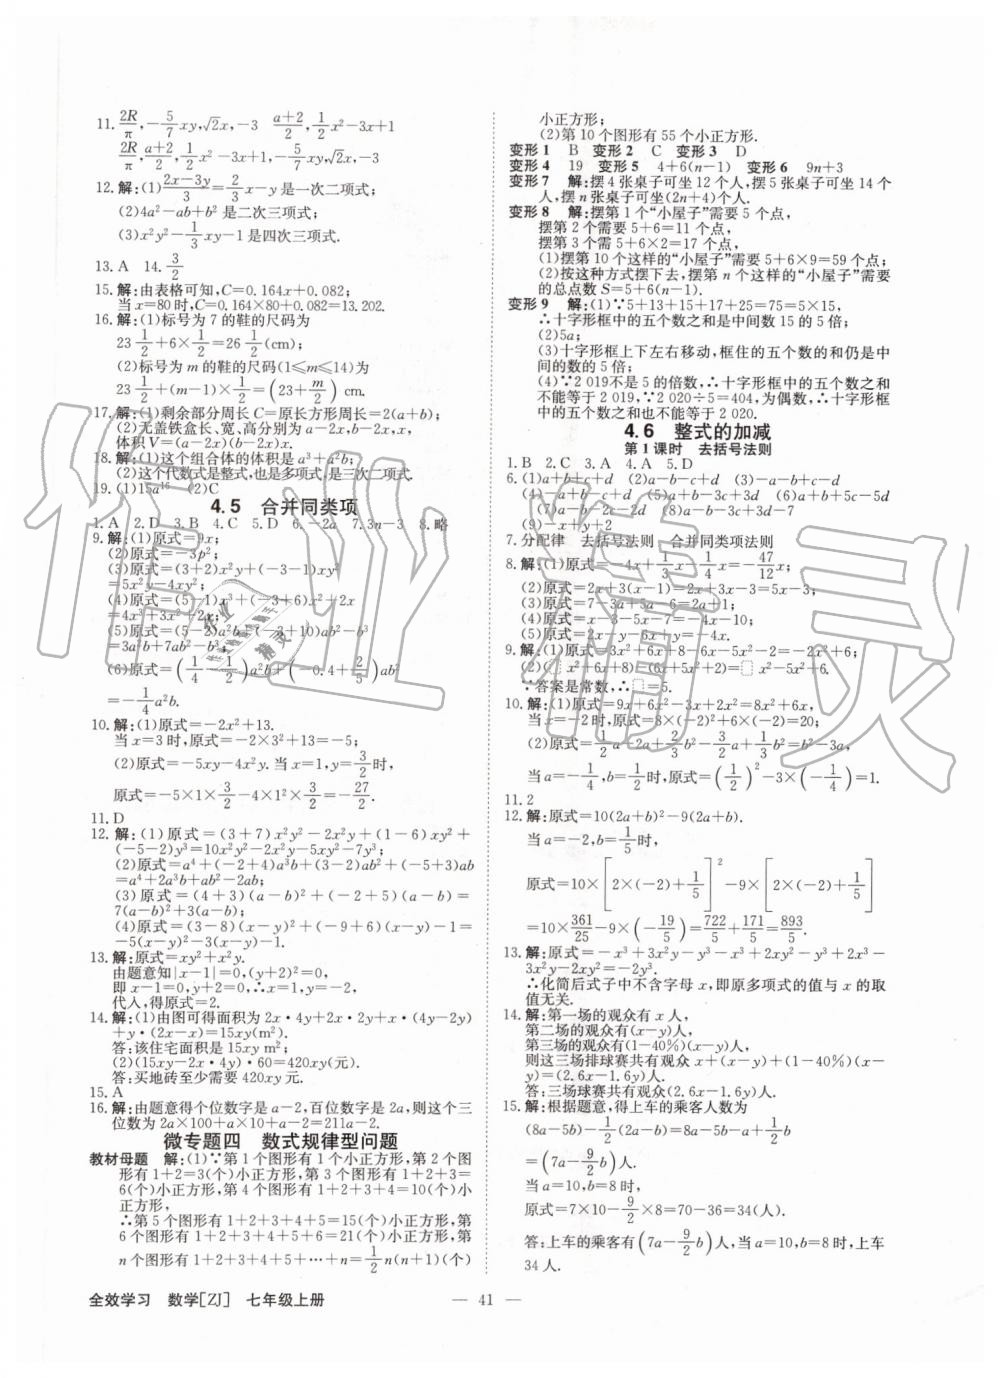 11. 2R/π, -5/7xy, √2x, -3  (a+2)/2, 1/2x²-3x+1
2R/π, (a+2)/2, 1/2x²-3x+1, -5/7xy, √2x, -3
12. 解:(1)(2x-3y)/3=2/3x-y是一次二项式;
(2)4a²-ab+b²是二次三项式;
(3)x²y²-1/3xy-1是四次三项式.
13. A 14. 3/2
15. 解:由表格可知,C=0.164x+0.082;
当x=80时,C=0.164×80+0.082=13.202.
16. 解:(1)标号为7的鞋的尺码为
23 1/2+6×1/2=26 1/2(cm);
(2)标号为m的鞋的尺码(1≤m≤14)为
23 1/2+(m-1)×1/2=(23+m/2) cm.
17. 解:(1)剩余部分周长C=原长方形周长=2(a+b);
(2)无盖铁盒长、宽、高分别为a-2x,b-2x,x,
体积V=(a-2x)(b-2x)x.
18. 解:(1)这个组合体的体积是a³+a²b;
(2)这个代数式是整式,也是多项式,是三次二项式.
19. (1)15a¹⁶ (2)C
4.5 合并同类项
1. A 2. D 3. B 4. C 5. D 6. -2a 7. 3n-3 8. 略
9. 解:(1)原式=9x;
(2)原式=-3p²;
(3)原式=(3+2)x²y+(-3-1)xy²
=5x²y-4xy²;
(4)原式=(5-1)x³+(-3+6)x²+2x
=4x³+3x²+2x;
(5)原式=(5-2)a²b+(-3+10)ab²
=3a²b+7ab²;
(6)原式=(1/4-1/2)a²b+(-0.4+2/5)ab²
=-1/4a²b.
10. 解:(1)原式=-2x²+13.
当x=3时,原式=-2×3²+13=-5;
(2)原式=-5xy-4x²,当x=1,y=3/2时,
原式=-5×1×3/2-4×1²×3/2=-27/2.
11. D
12. 解:(1)原式=(3+7)x²y²-2x²y+(1-6)xy²+
(-5-2)y³=10x²y²-2x²y-5xy²-7y³;
(2)原式=a⁴+(-2+4)a³b+(3-2)ab²+(-5+3)ab
=a⁴+2a³b+ab²-2ab;
(3)原式=(4+3)(a-b)²+(-2+5)(a-b)=
7(a-b)²+3(a-b);
(4)原式=(3-8)(x-y)²+(-9+6)(x-y)-1=
-5(x-y)²-3(x-y)-1.
13. 解:原式=xy²+x²y.
由题意知|x-1|=0,(y+2)²=0,
即x-1=0,y+2=0,∴x=1,y=-2.
代入,得原式=2.
14. 解:(1)由图可得面积为2x·4y+2x·x·(4y-2y)
+y·(2x-x)=15xy(m²).
答:该住宅面积是15xy m²;
(2)(15xy-2x·4y)·60=420xy(元).
答:买地砖至少需要420xy元.
15. A
16. 解:由题意得个位数字是a-2,百位数字是2a,则这个三
位数为2a×100+a×10+a-2=211a-2.
微专题四 数式规律型问题
教材母题 解:(1)∵第1个图形有1个小正方形,第2个图
形有1+2=3(个)小正方形,第3个图形有1+2+3=
6(个)小正方形,第4个图形有1+2+3+4=10(个)小
正方形,
∴第5个图形有1+2+3+4+5=15(个)小正方形,第
6个图形有1+2+3+4+5+6=21(个)小正方形,第
n个图形有1+2+3+4+5+⋯+n=1/2n(n+1)(个)
小正方形;
(2)第10个图形有55个小正方形.
变形1 B 变形2 C 变形3 D
变形4 19 变形5 4+6(n-1) 变形6 9n+3
变形7 解:摆4张桌子可坐12个人,摆5张桌子可坐14个
人,摆n张桌子可坐(2n+4)个人.
变形8 解:摆第1个“小屋子”需要5个点,
摆第2个需要5+6=11个点,
摆第3个需5+6×2=17个点,
(1)摆第10个这样的“小屋子”需要5+6×9=59个点;
(2)按这种方式摆下去,摆第n个这样的“小屋子”需要
的总点数S=5+6(n-1).
变形9 解:(1)∵5+13+15+17+25=75=5×15,
∴十字形框中的五个数之和是中间数15的5倍;
(2)5a;
(3)十字形框上下左右移动,框住的五个数的和仍是中
间的数的5倍;
(4)∵2 019不是5的倍数,∴十字形框中五个数之和
不能等于2 019,∵2 020÷5=404,为偶数,∴十字形框中
的五个数之和也不能等于2 020.
4.6 整式的加减
第1课时 去括号法则
1. B 2. C 3. A 4. A 5. D
6. (1)a+b+c+d (2)a-b-c+d (3)-a-b+c-d
(4)-a+b+c-d (5)a+b+c-d (6)a+b+5c-5d
(7)-a-b+5c-5d (8)a-b-3c+3d-7
(9)-x+y+2
7. 分配律 去括号法则 合并同类项法则
8. 解:(1)原式=-4x+1/3x-1/4x=-47/12x;
(2)原式=2x+3(x-1)=2x+3x-3=5x-3;
(3)原式=7-3a+5a-6=2a+1;
(4)原式=5a-7-5a-4-6=-10;
(5)原式=2x-y-6x+y=-4x.
9. 解:(1)原式=3x²+6x+8-6x-5x²-2=-2x²+6;
(2)(□x²+6x+8)-(6x+5x²+2)=□x²-5x²+6.
∵答案是常数,∴□=5.
10. 解:(1)原式=9x+6x²-3x+2x²=8x²+6x,
当x=-2时,原式=8×(-2)²+6×(-2)=20;
(2)原式=1/2a-2a+2/3b²-3/2a+1/3b²=b²-3a,
当a=-1/4,b=1/2时,原式=(1/2)²-3×(-1/4)=1.
11. 2
12. 解:原式=10(2a+b)²-9(2a+b).
当a=-2,b=1/5时,
原式=10×[2×(-2)+1/5]²-9×[2×(-2)+1/5]
=10×361/25-9×(-19/5)=722/5+171/5=893/5.
13. 解:原式=-x³+3x²y-y³-x³+2xy²-y³+2x³-
3x²y-2xy²=-2y³.
∴化简后式子中不含字母x,即原多项式的值与x的取
值无关.
14. 解:第一场的观众有x人,
第二场的观众有(x-y)人,
第三场的观众有(1-40%)(x-y)人,
则这三场排球赛共有观众x+(x-y)+(1-40%)(x-
y)=(2.6x-1.6y)人.
答:三场球赛共有观众(2.6x-1.6y)人.
15. 解:根据题意,得上车的乘客人数为
(8a-5b)-1/2(6a-2b)... 
=(7a-9/2b)人.
当a=10,b=8时,
原式=7×10-9/2×8=70-36=34(人).
答:上车的乘客有(7a-9/2b)人,当a=10,b=8时,上车
34人.
全效学习 数学[ZJ] 七年级上册
— 41 —
作业精灵